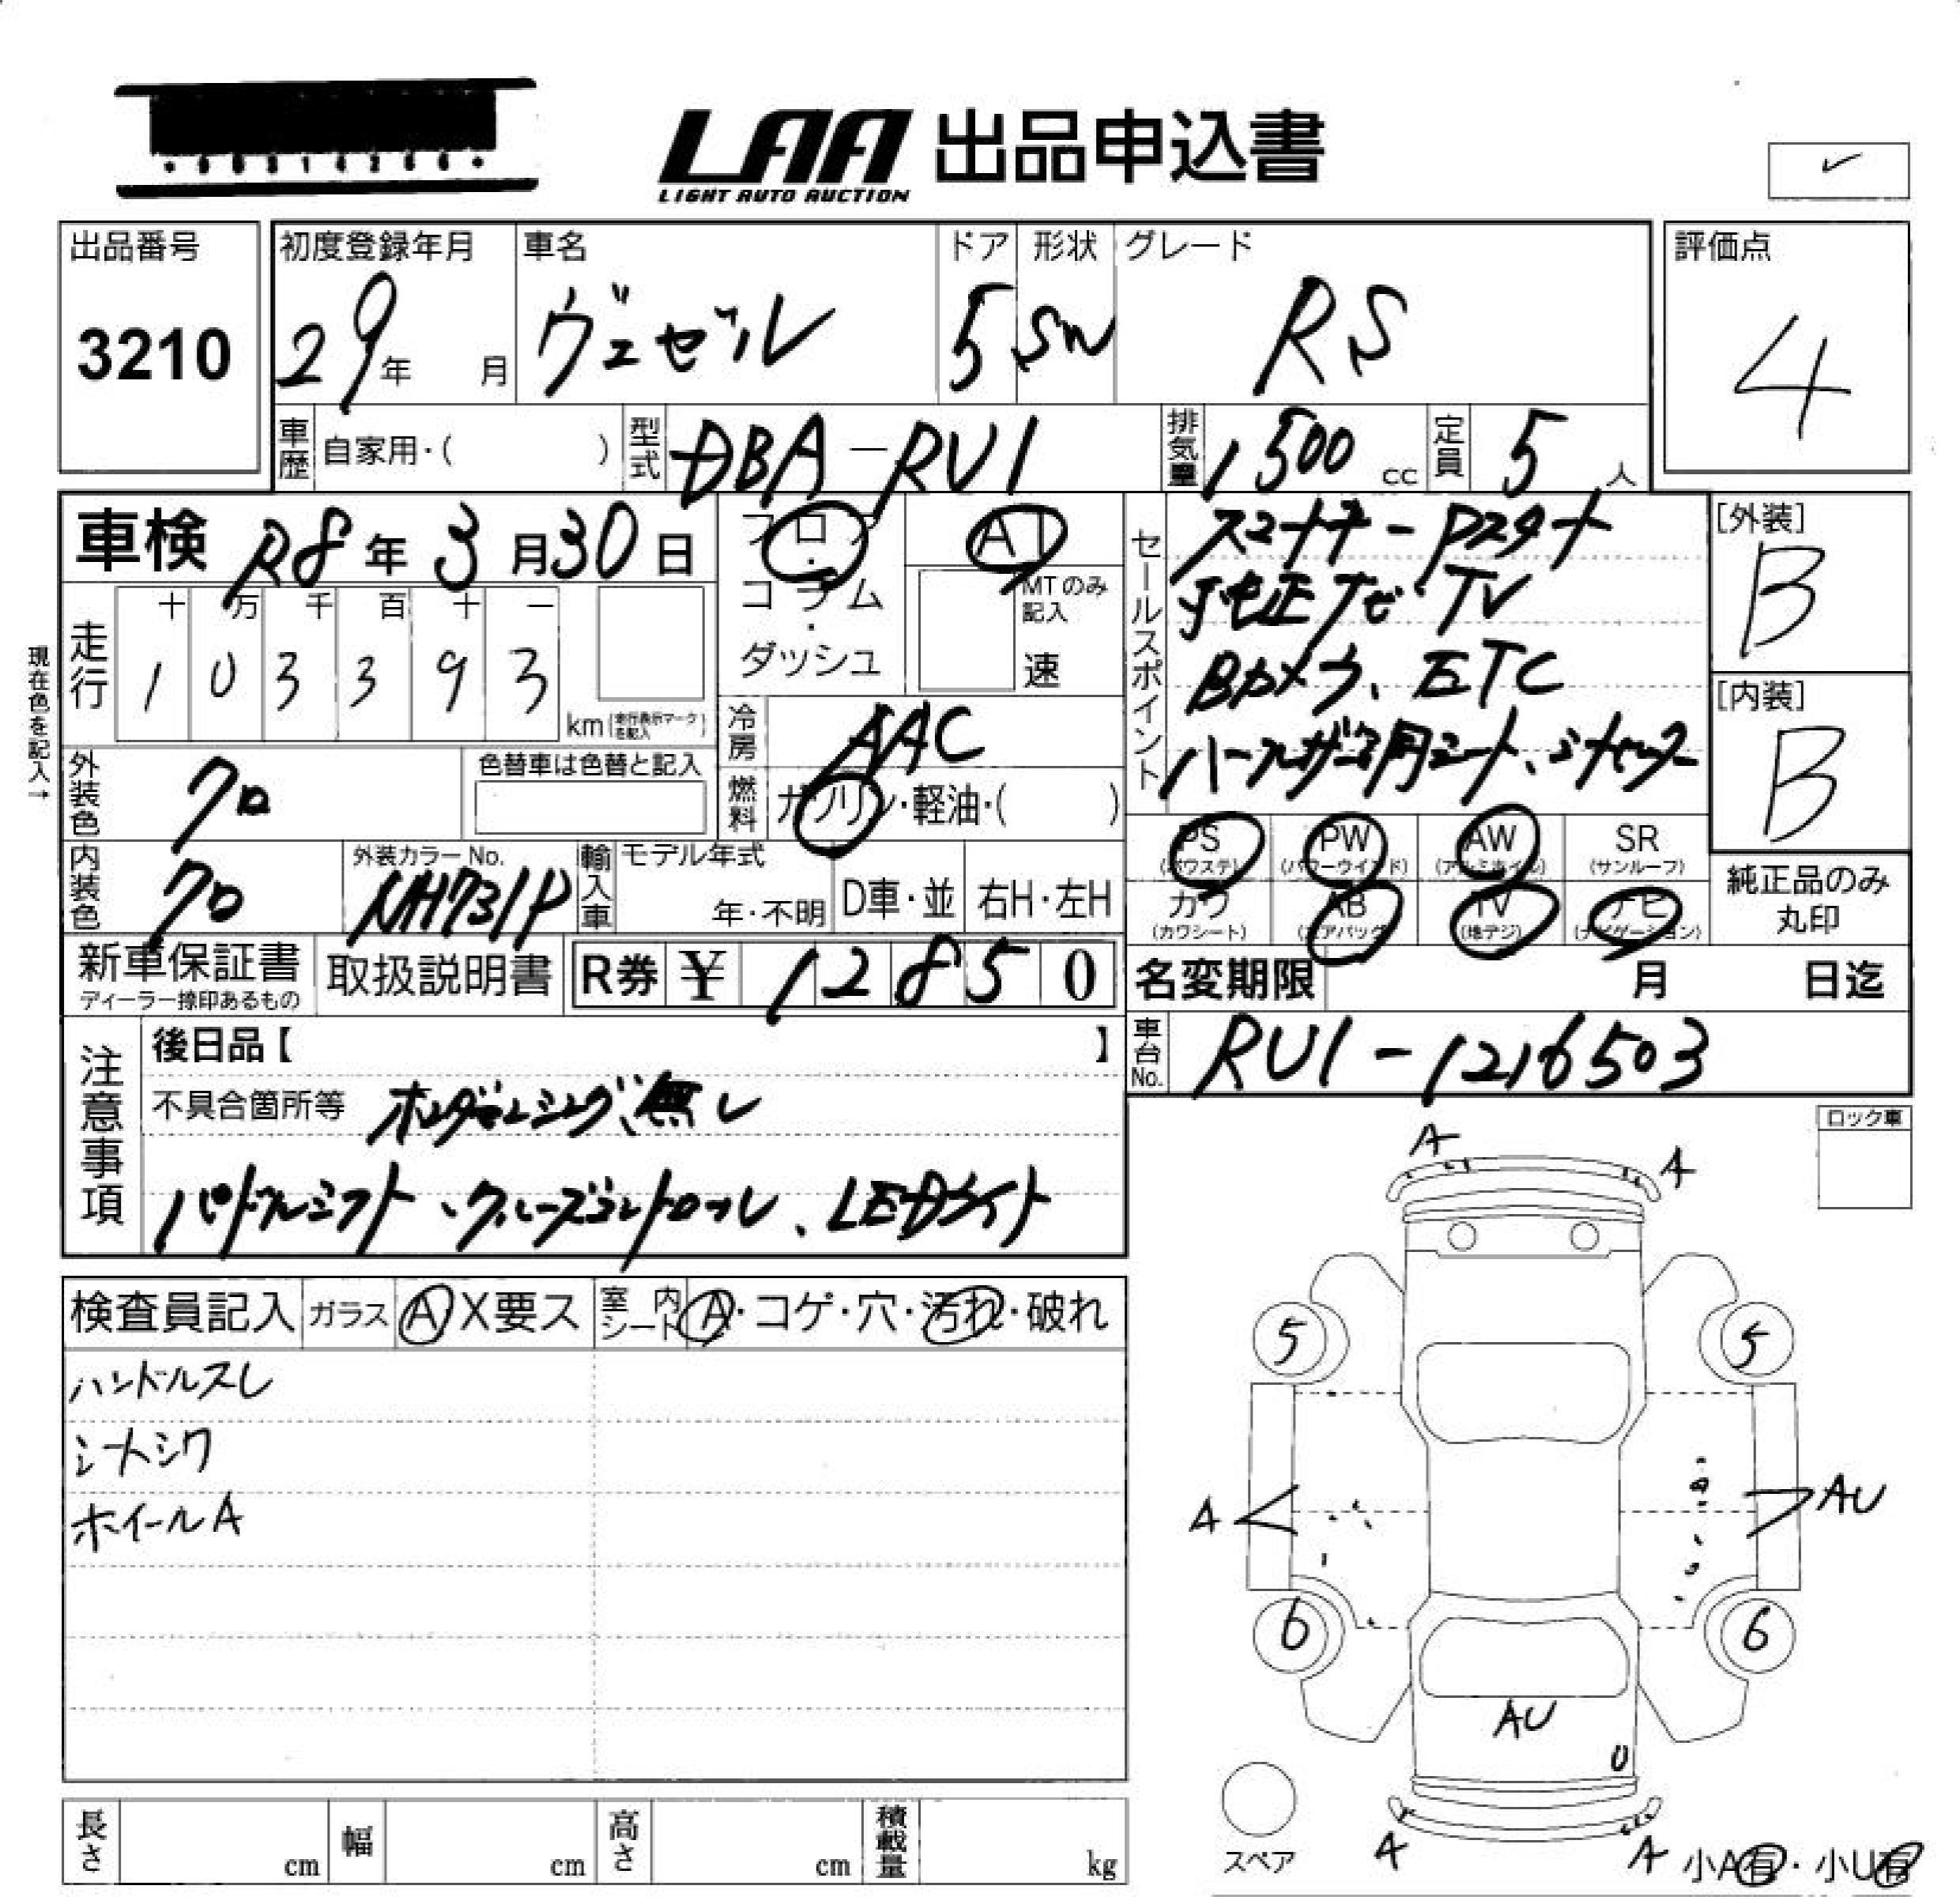 LAA 出品申込書
LIGHT AUTO AUCTION
出品番号
3210
初度登録年月
29年 月
車名
ヴェゼル
ドア
5
形状
SW
グレード
RS
評価点
4
車歴 自家用・( )
型式 DBA-RU1
排気量 1500 cc
定員 5 人
車検 R8年3月30日
フロア・コラム・ダッシュ
AT
MTのみ記入
速
セールスポイント
スマートキー Pスタート
純正ナビ TV
Bカメラ、ETC
ハーフレザー調シート、
[外装]
B
[内装]
B
現在色を記入→
走行
十 万 千 百 十 一
1 0 3 3 9 3
km(走行表示マークを記入)
冷房 AAC
燃料 ガソリン・軽油・( )
外装色 クロ
色替車は色替と記入
内装色 クロ
外装カラーNo.
NH731P
輸入車
モデル年式
年・不明
D車・並
右H・左H
PS (パワステ)
PW (パワーウインド)
AW (アルミホイル)
SR (サンルーフ)
カワ (カワシート)
AB (エアバッグ)
TV (地デジ)
ナビ (ナビゲーション)
純正品のみ丸印
新車保証書
ディーラー捺印あるもの
取扱説明書
R券 ¥ 12850
名変期限 月 日迄
車台No. RU1-1216503
注意事項
後日品【 】
不具合箇所等 ホンダセンシング、無し
パドルシフト、クルーズコントロール、LEDライト
ロック車
検査員記入
ガラス A X要ス
室内シート A・コゲ・穴・汚れ・破れ
ハンドルスレ
シートシワ
ホイールA
A
A
5
5
A
AU
6
6
AU
U
A
A
スペア
小A有・小U有
長さ cm
幅 cm
高さ cm
積載量 kg